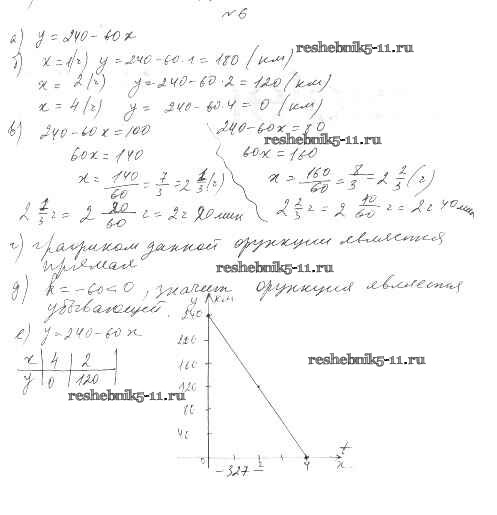 №6
а) y = 240-60x
reshebnik5-11.ru
б) x=1(ч) y=240-60·1=180 (км)
x= 2(ч) y=240-60·2=120(км)
x=4(ч) y= 240-60·4=0(км)
в) 240-60x=100 240-60x=80
reshebnik5-11.ru
60x=140 60x=160
x=140/60=7/3=2 1/3(ч) x=160/60=8/3=2 2/3(ч)
2 1/3 ч = 2 20/60 ч = 2ч 20мин 2 2/3 ч = 2 40/60 ч = 2ч 40мин
г) графиком данной функции является
прямая
reshebnik5-11.ru
д) k=-60<0, значит функция является
убывающей.
е) y=240-60x
x 4 2
y 0 120
reshebnik5-11.ru
reshebnik5-11.ru
y км
240
160
120
80
40
0 2 4 t
x
-327-